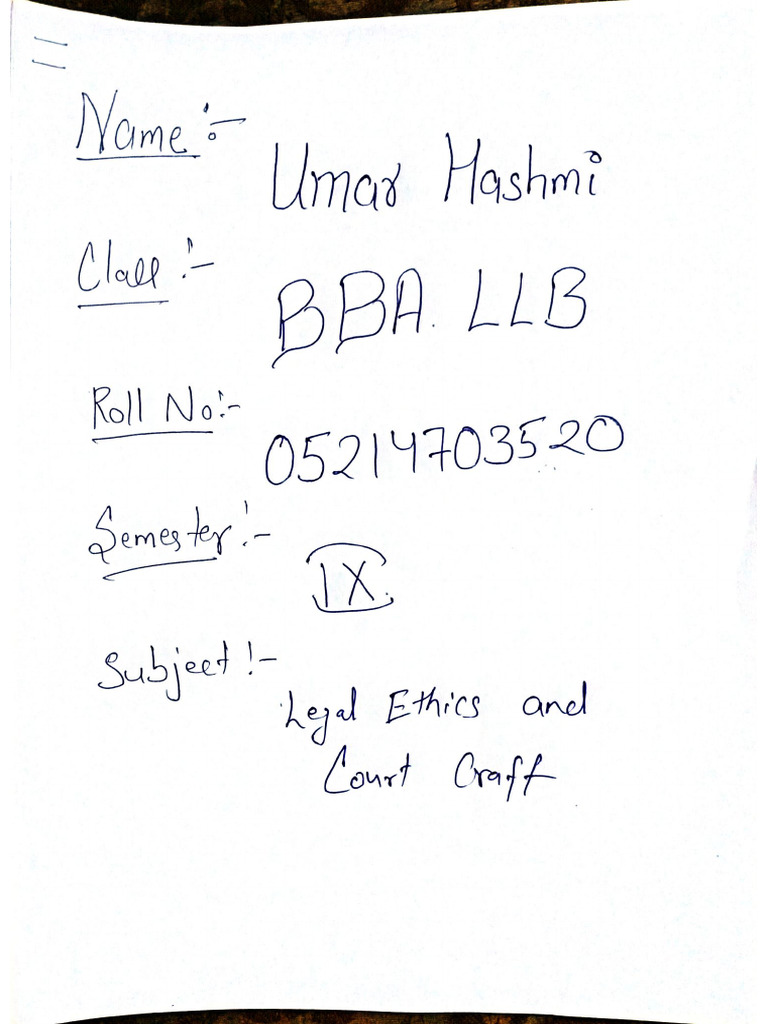 Name :-
Umar Hashmi
Class :-
BBA. LLB
Roll No :-
05214703520
Semester :-
IX.
Subject :-
Legal Ethics and
Court Craft